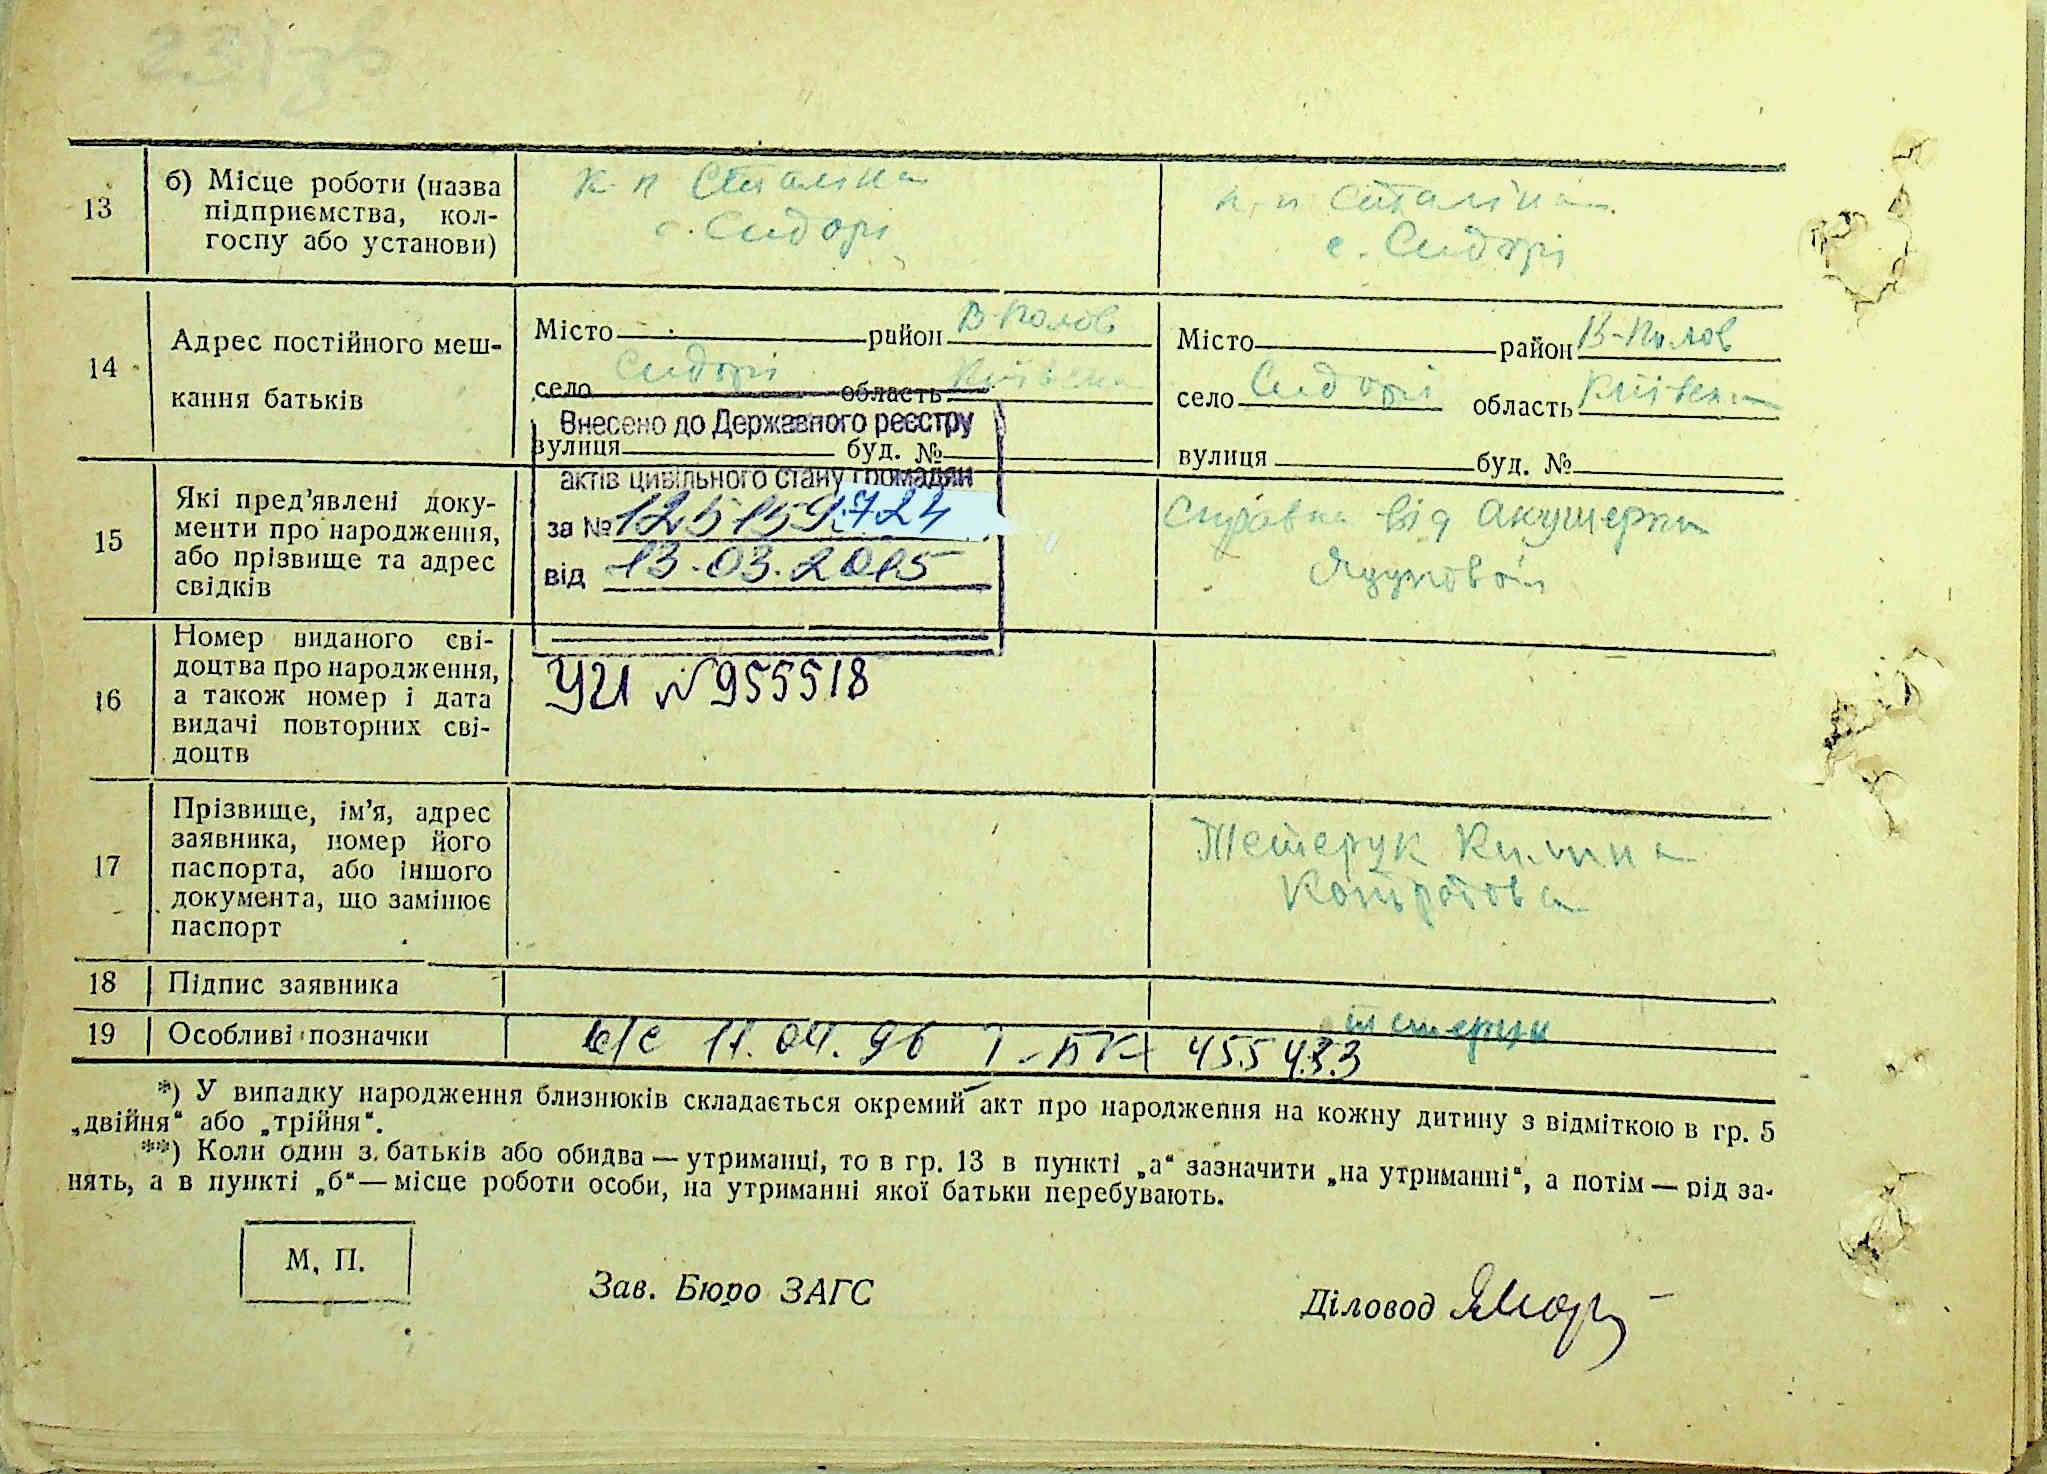 13
б) Місце роботи (назва
підприємства, кол-
госпу або установи)
к-п Сталіна
с. Сидорі
к-п Сталіна
с. Сидорі
14
Адрес постійного меш-
кання батьків
Місто район В-Полов
село Сидорі область Київська
вулиця буд. №
Місто район В-Полов
село Сидорі область Київська
вулиця буд. №
Внесено до Державного реєстру
актів цивільного стану громадян
за № 125159724
від 13.03.2015
15
Які пред’явлені доку-
менти про народження,
або прізвище та адрес
свідків
Справка від акушерки
16
Номер виданого сві-
доцтва про народження,
а також номер і дата
видачі повторних сві-
доцтв
УИ № 955518
17
Прізвище, ім’я, адрес
заявника, номер його
паспорта, або іншого
документа, що замінює
паспорт
Тетерук
18 Підпис заявника
Тетерук
19 Особливі позначки
11.04.96 І-БК 455433
*) У випадку народження близнюків складається окремий акт про народження на кожну дитину з відміткою в гр. 5
„двійня“ або „трійня“.
**) Коли один з батьків або обидва — утриманці, то в гр. 13 в пункті „а“ зазначити „на утриманні“, а потім — рід за-
нять, а в пункті „б“ — місце роботи особи, на утриманні якої батьки перебувають.
М. П.
Зав. Бюро ЗАГС
Діловод